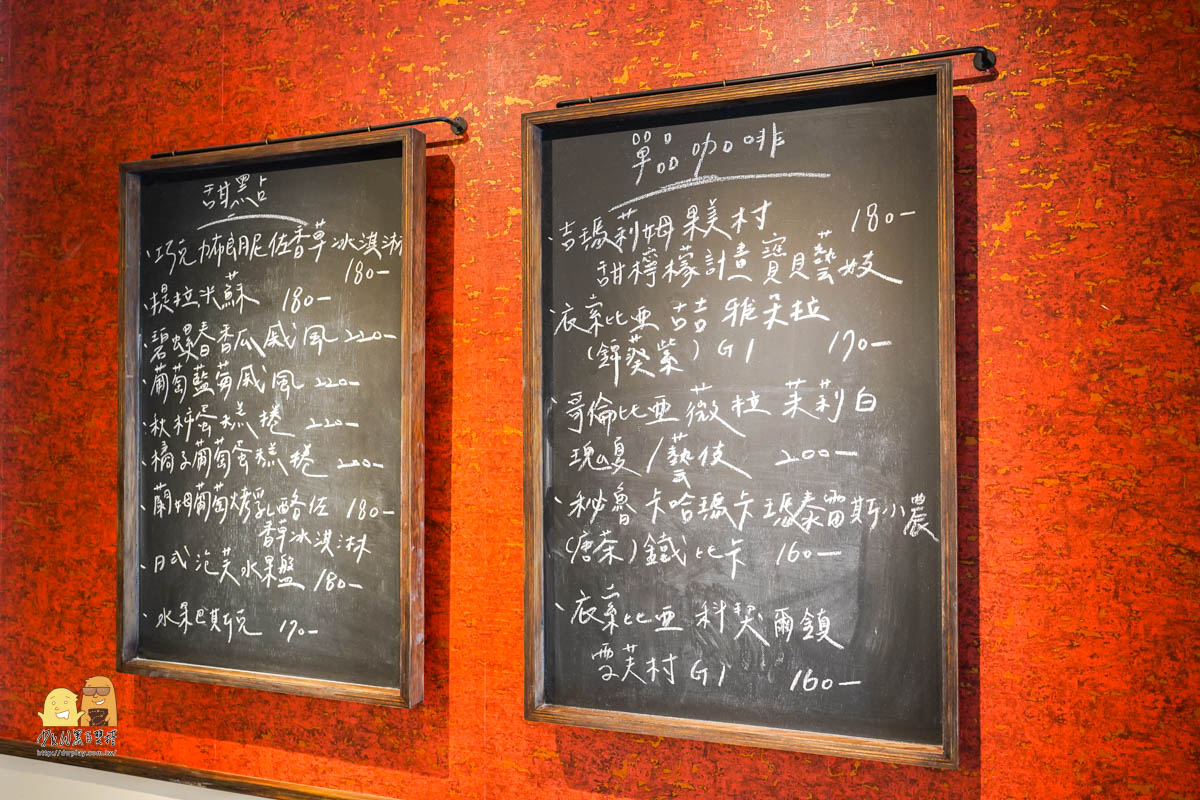 甜點
、巧克力布朗尼佐香草冰淇淋
180-
、提拉米蘇 180-
、碧螺春香瓜戚風 220-
、葡萄藍莓戚風 220-
、秋柿蛋糕捲 220-
、橘子葡萄蛋糕捲 200-
、蘭姆葡萄烤乳酪佐 180-
香草冰淇淋
、日式泡芙水果盤 180-
、水果巴斯克 170-
單品咖啡
、吉瑪莉姆果美村 180-
甜檸檬計畫寶貝藝妓
、衣索比亞 吉吉 雅朵拉
(鐸葵紫) G1 170-
、哥倫比亞薇拉 茉莉白
瑰夏/藝伎 200-
、秘魯 卡哈瑪卡 瑪泰雷斯小農
(唐茶)鐵比卡 160-
、衣索比亞 科契爾鎮
雪芙村 G1 160-
http://dwrplay.com.tw/